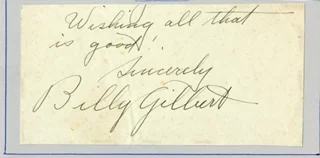 Wishing all that
is good!
Sincerely
Billy Gilbert